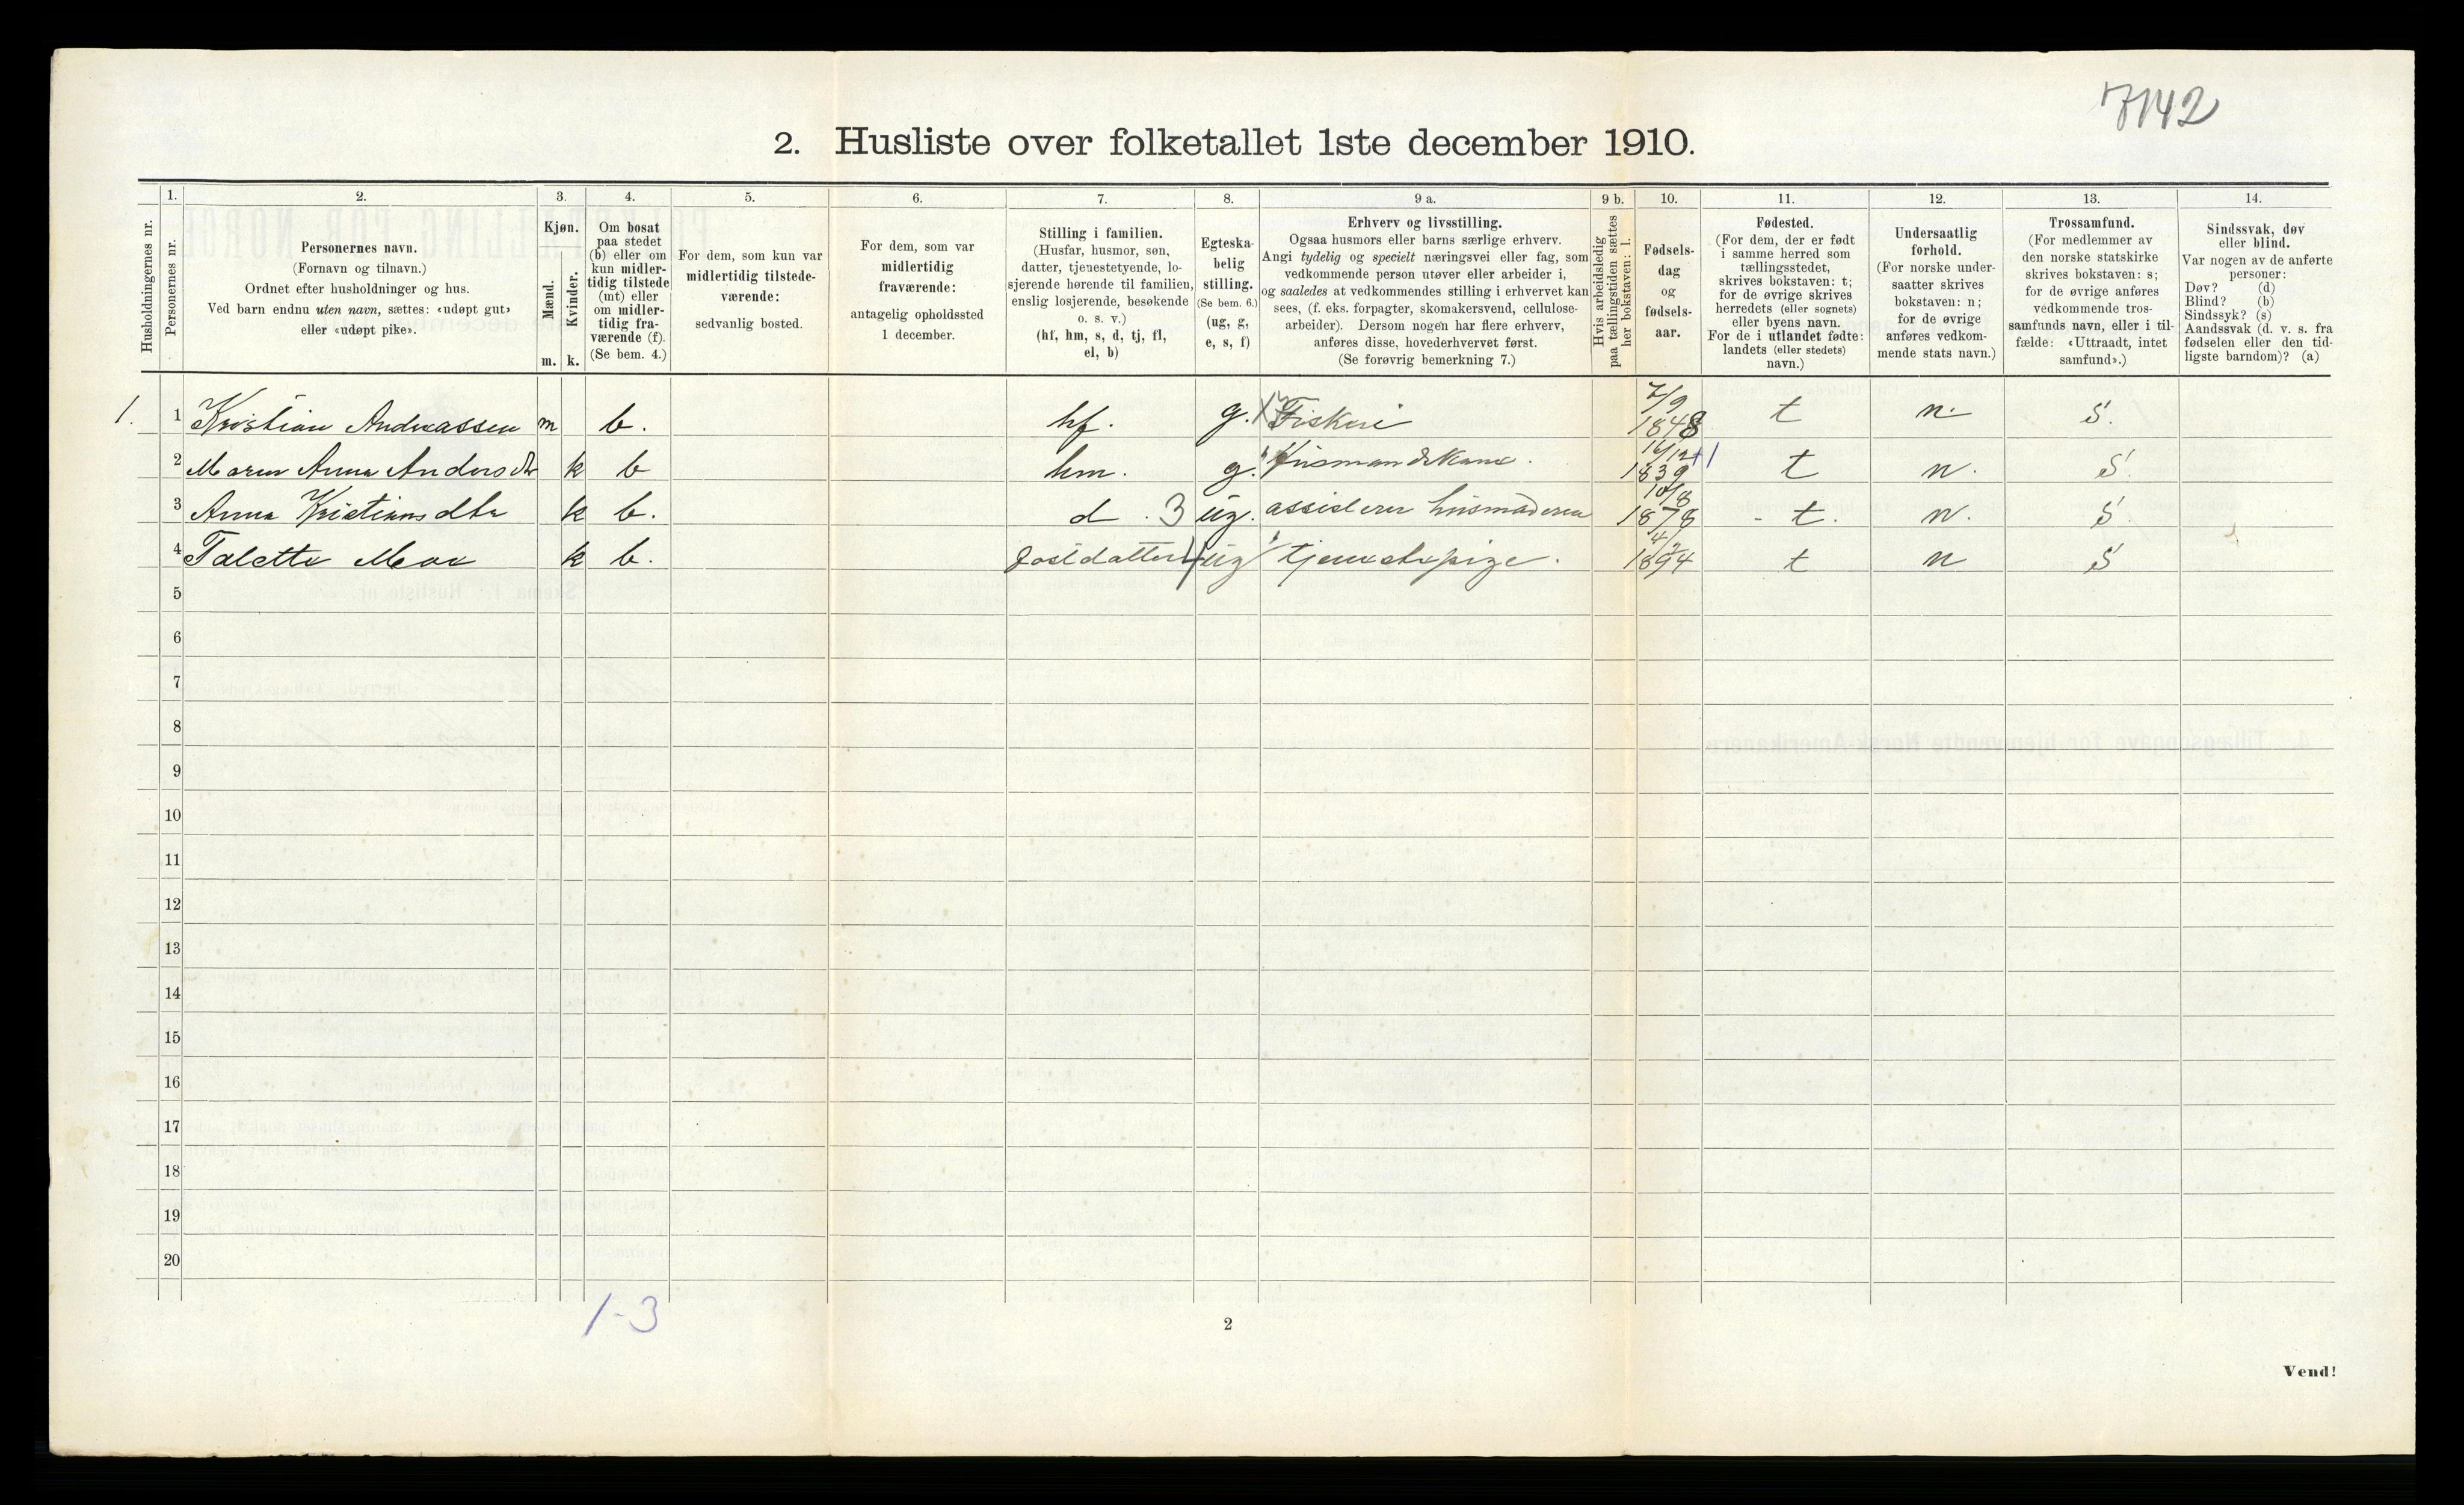 7142
2. Husliste over folketallet 1ste december 1910.
Husholdningernes nr.
1.
Personernes nr.
2.
Personernes navn.
(Fornavn og tilnavn.)
Ordnet efter husholdninger og hus.
Ved barn endnu uten navn, sættes: «udøpt gut»
eller «udøpt pike».
3.
Kjøn.
Mænd.
Kvinder.
m. k.
4.
Om bosat
paa stedet
(b) eller om
kun midler-
tidig tilstede
(mt) eller
om midler-
tidig fra-
værende (f).
(Se bem. 4.)
5.
For dem, som kun var
midlertidig tilstede-
værende:
sedvanlig bosted.
6.
For dem, som var
midlertidig
fraværende:
antagelig opholdssted
1 december.
7.
Stilling i familien.
(Husfar, husmor, søn,
datter, tjenestetyende, lo-
sjerende hørende til familien,
enslig losjerende, besøkende
o. s. v.)
(hf, hm, s, d, tj, fl,
el, b)
8.
Egteska-
belig
stilling.
(Se bem. 6.)
(ug, g,
e, s, f)
9 a.
Erhverv og livsstilling.
Ogsaa husmors eller barns særlige erhverv.
Angi tydelig og specielt næringsvei eller fag, som
vedkommende person utøver eller arbeider i,
og saaledes at vedkommendes stilling i erhvervet kan
sees, (f. eks. forpagter, skomakersvend, cellulose-
arbeider). Dersom nogen har flere erhverv,
anføres disse, hovederhvervet først.
(Se forøvrig bemerkning 7.)
9 b.
Hvis arbeidsledig
paa tællingstiden sættes
her bokstaven: l.
10.
Fødsels-
dag
og
fødsels-
aar.
11.
Fødested.
(For dem, der er født
i samme herred som
tællingsstedet,
skrives bokstaven: t;
for de øvrige skrives
herredets (eller sognets)
eller byens navn.
For de i utlandet fødte:
landets (eller stedets)
navn.)
12.
Undersaatlig
forhold.
(For norske under-
saatter skrives
bokstaven: n;
for de øvrige
anføres vedkom-
mende stats navn.)
13.
Trossamfund.
(For medlemmer av
den norske statskirke
skrives bokstaven: s;
for de øvrige anføres
vedkommende tros-
samfunds navn, eller i til-
fælde: «Uttraadt, intet
samfund».)
14.
Sindssvak, døv
eller blind.
Var nogen av de anførte
personer:
Døv? (d)
Blind? (b)
Sindssyk? (s)
Aandssvak (d. v. s. fra
fødselen eller den tid-
ligste barndom)? (a)
1. 1 Kristian Andreassen m b. hf. g. Fiskeri 7/9 1848 t n. S.
2 Maren Anna Andersdtr k b hm. g. Husmandskone. 16/12 1839 t n. S.
3 Anna Kristiansdtr k b. d. 3 ug. assisterer husmoderen 10/8 1878 t. n. S.
4 Talette Moe k b. Fostdatter ug tjenestepige. 1894 t n S
5
6
7
8
9
10
11
12
13
14
15
16
17
18
19
20
1-3
2
Vend!